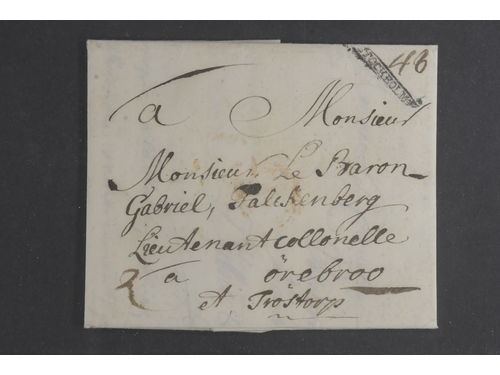 48
STOCKHOLM
a Monsieur
Monsieur Le Baron
Gabriel, Falckenberg
Lieutenant collonelle
a örebroo
et Tröstorp
2